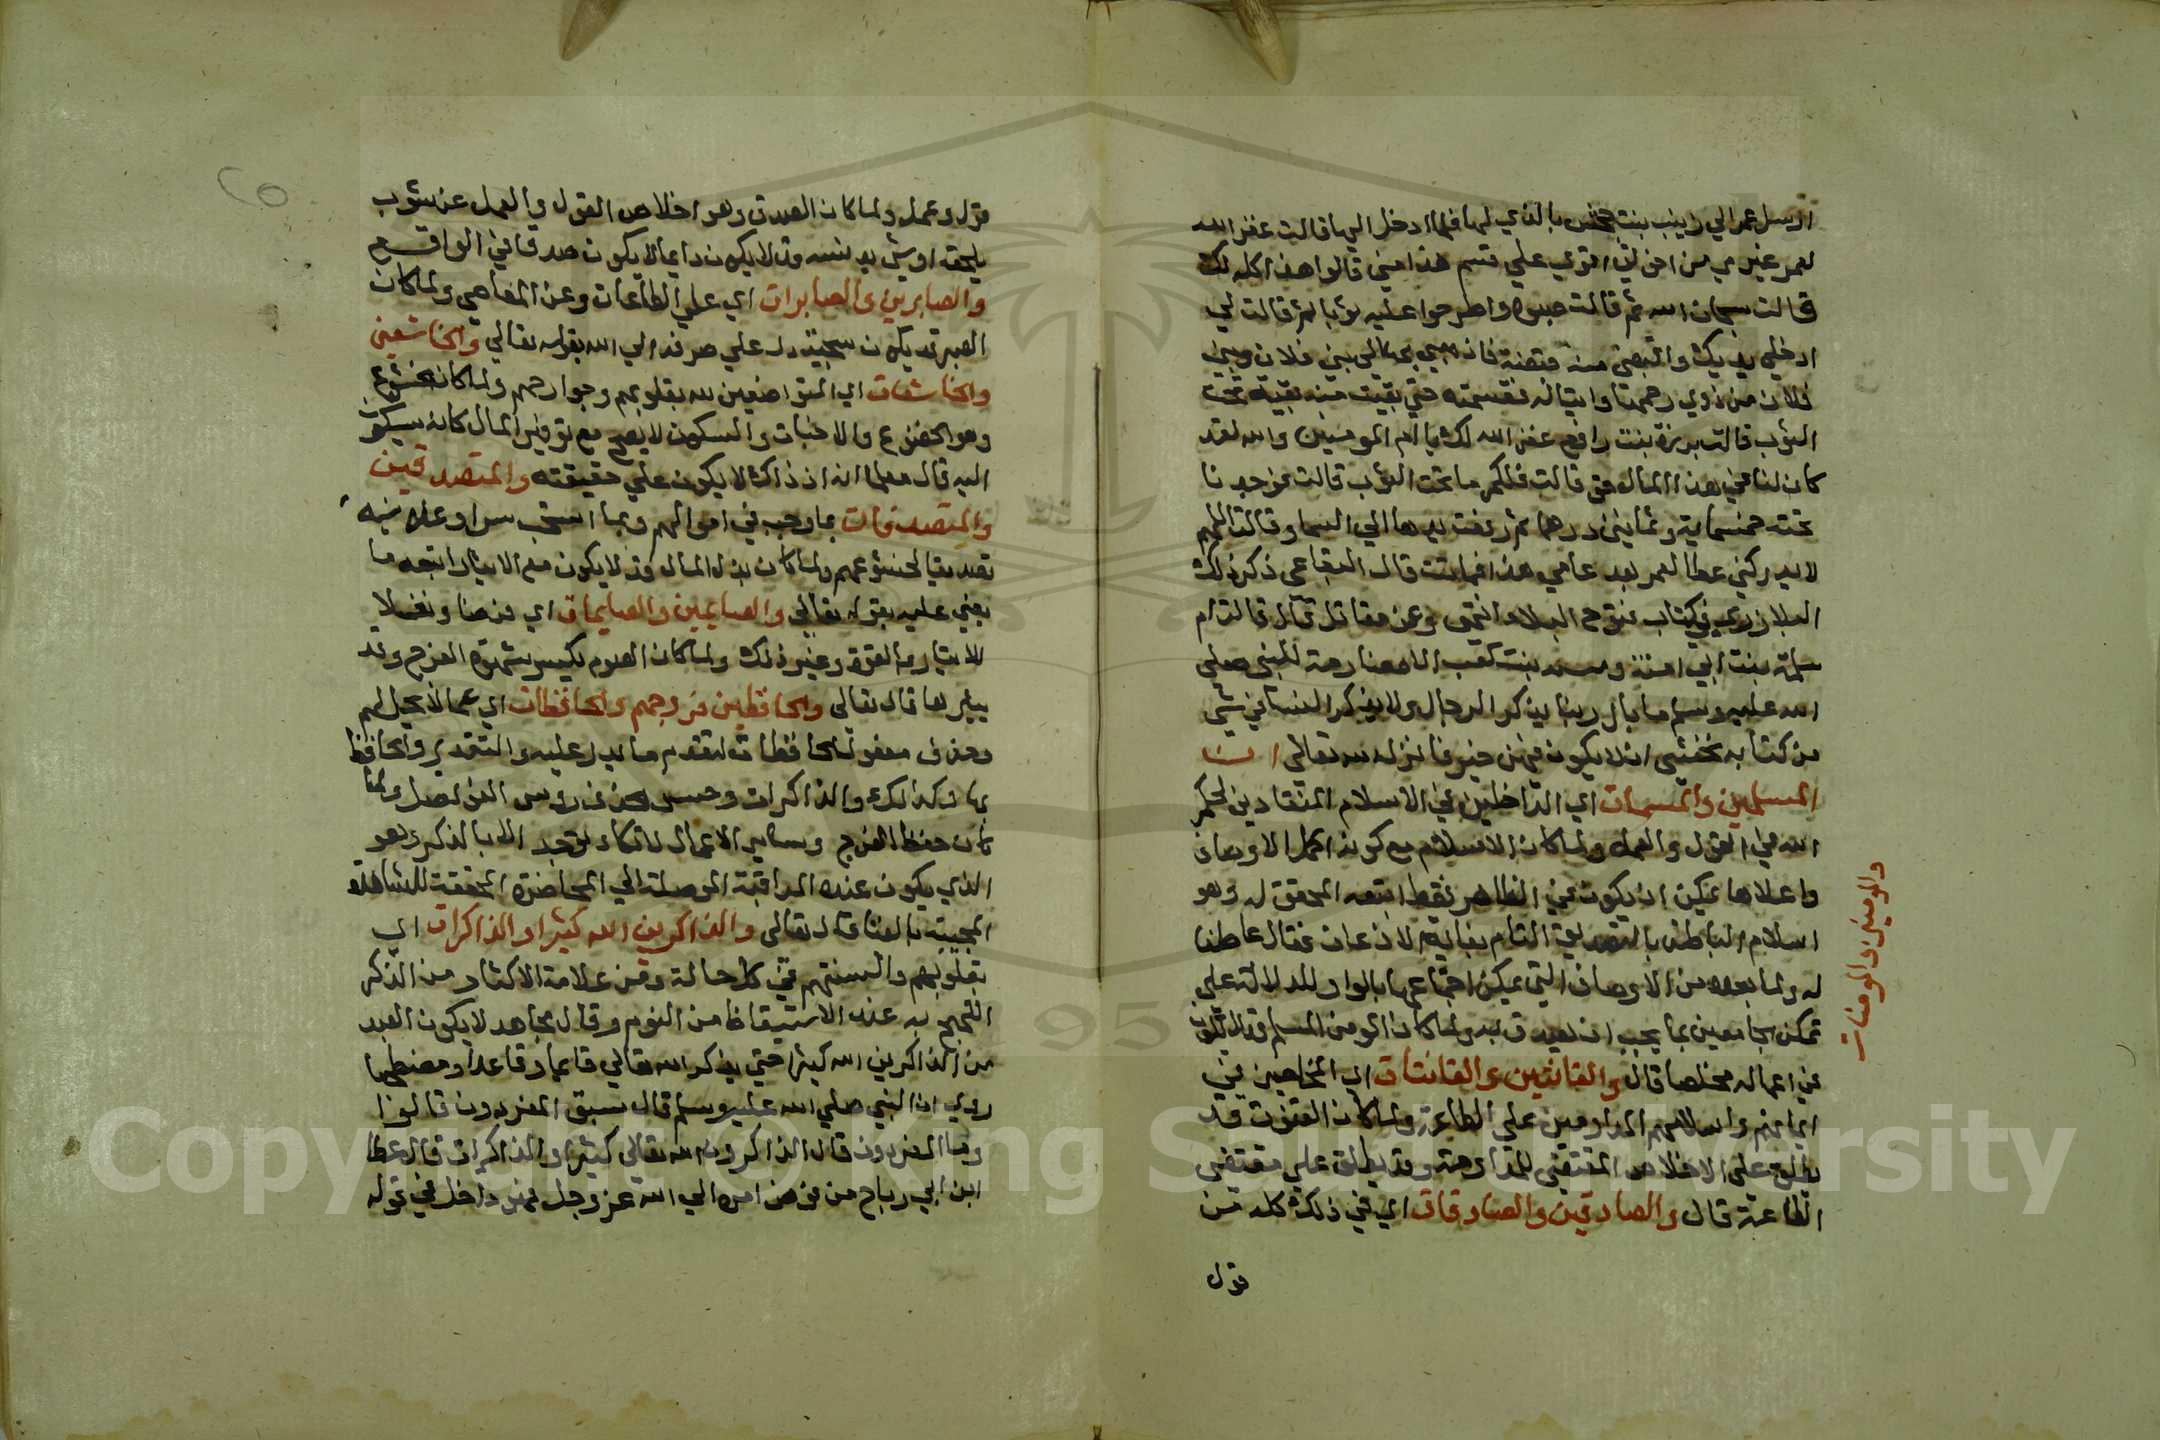 ارسل عمر الي زينب بنت جحش بالذي لها فلما ادخل اليها قالت غفر الله
لعمر غيري من اخواتي اقوي علي قسم هذا مني قالوا هذا كله لك
قالت سبحان الله ثم قالت صبوه واطرحوا عليه ثوبا ثم قالت لي
ادخلي يديك واقبضي منه قبضة فاذهبي بها الي بني فلان وبني
فلان من ذوي رحمها وايتام فقسمته حتي بقيت منه بقية تحت
الثوب قالت برزة بنت رافع غفر الله لك يا ام المومنين والله لقد
كان لنا في هذا المال حق قالت فلكم ما تحت الثوب قالت فوجدنا
تحته خمسماية وثمانين درهما ثم رفعت يدها الي السما وقالت اللهم
لا يدركني عطا لعمر بعد عامي هذا فماتت قال البقاعي ذكر ذلك
البلاذري في كتاب فتوح البلاد انتهى وعن مقاتل قال قالت ام
سلمة بنت ابي امية ونسيبة بنت كعب الانصارية للنبي صلي
الله عليه وسلم ما بال ربنا يذكر الرجال ولا يذكر النسا في شي
من كتابه نخشي ان لا يكون فيهن خير فانزل الله تعالى ان
المسلمين والمسلمات اي الداخلين في الاسلام المنقادين لحكم
الله في القول والعمل ولما كان الاسلام مع كونه اكمل الاوصاف
واعلاها يمكن ان يكون في الظاهر فقط اتبعه المحقق له وهو
اسلام الباطن بالتصديق التام بغاية الاذعان فقال عاطفا
له ولما بعده من الاوصاف التي يمكن اجتماعها بالواو للدلالة علي
تمكن الجامعين بما يجب ان يصدق به ولما كان المومن المسلم قد لا يكون
والمومنين والمومنات
في اعماله مخلصا قال والقانتين والقانتات اي المخلصين في
ايمانهم واسلامهم المداومين علي الطاعة ولما كان القنوت قد
يطلق علي الاخلاص المقتضي للمداومة وقد يطلق علي مقتضى
الطاعة قال والصادقين والصادقات اي في ذلك كله من
قول
قول وعمل ولما كان الصدق وهو اخلاص القول والعمل عن شوب
يلحقه او شي يدنسه قد لا يكون دايما لا يكون صدقا في الواقع
والصابرين والصابرات اي علي الطاعات وعن المعاصي ولما كان
الصبر قد يكون سجية دل علي صرفه الي الله بقوله تعالي والخاشعين
والخاشعات اي المتواضعين لله بقلوبهم وجوارحهم ولما كان الخشوع
وهو الخضوع والاخبات والسكون لا يصح مع توفير المال كانه سيكون
اليه قال معلما انه اذ ذاك لا يكون علي حقيقته والمتصدقين
والمتصدقات بما وجب في اموالهم وبما استحب سرا وعلانية
تصديقا لخشوعهم ولما كان بذل المال قد لا يكون مع الايثار اتبعه ما
يعني عليه بقوله تعالى والصايمين والصايمات اي فرضا ونفلا
للايثار بالقوت وغير ذلك ولما كان الصوم يكسر شهوة الفرج وقد
يثيرها قال تعالى والحافظين فروجهم والحافظات اي عما لا يحل لهم
وحذف مفعول الحافظات لتقدم ما يدل عليه والتقدير والحافظا
تها وكذلك والذاكرات وحسن الحذف روس الفواصل ولما
كان حفظ الفرج وساير الاعمال لا تكاد توجد الا بالذكر وهو
الذي يكون عنده المراقبة الموصلة الي المحاضرة المحققة للمشاهدة
المحيية بالفنا قال تعالى والذاكرين الله كثيرا والذاكرات اي
بقلوبهم والسنتهم في كل حالة ومن علامة الاكثار من الذكر
اللهج به عند الاستيقاظ من النوم وقال مجاهد لا يكون العبد
من الذاكرين الله كثيرا حتي يذكر الله تعالي قايما وقاعدا ومضطجعا
روي ان النبي صلي الله عليه وسلم قال سبق المفردون قالوا
وما المفردون قال الذاكرون الله تعالى كثيرا والذاكرات قال عطا
ابن ابي رباح من فوض امره الي الله عز وجل فهو داخل في قوله
Copyright © King Saud University